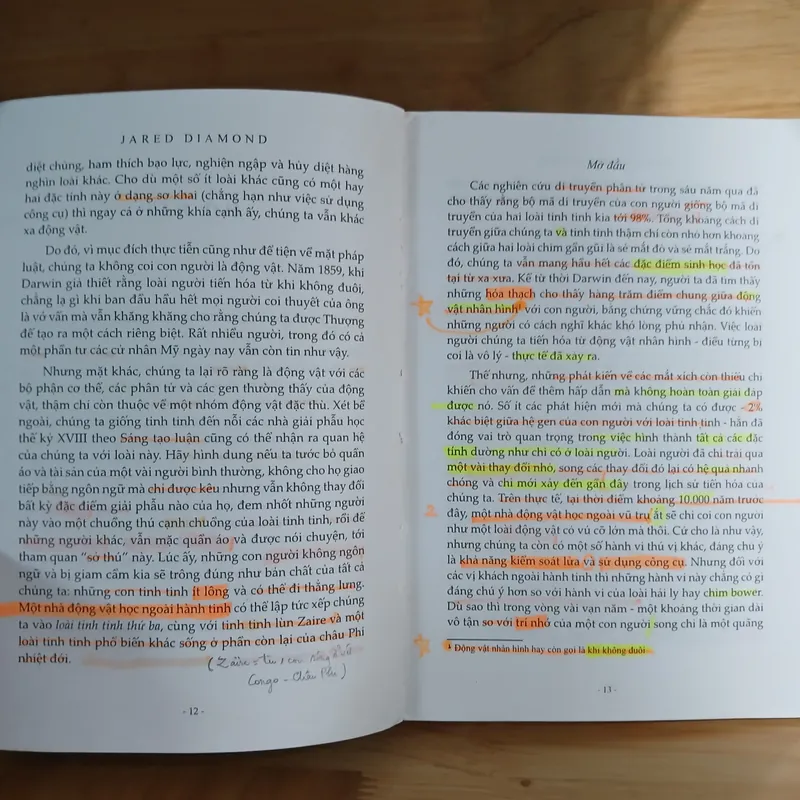 JARED DIAMOND
diệt chủng, ham thích bạo lực, nghiện ngập và hủy diệt hàng
nghìn loài khác. Cho dù một số ít loài khác cũng có một hay
hai đặc tính này ở dạng sơ khai (chẳng hạn như việc sử dụng
công cụ) thì ngay cả ở những khía cạnh ấy, chúng ta vẫn khác
xa động vật.
Do đó, vì mục đích thực tiễn cũng như để tiện về mặt pháp
luật, chúng ta không coi con người là động vật. Năm 1859, khi
Darwin giả thiết rằng loài người tiến hóa từ khỉ không đuôi,
chẳng lạ gì khi ban đầu hầu hết mọi người coi thuyết của ông
là vớ vẩn mà vẫn khăng khăng cho rằng chúng ta được Thượng
đế tạo ra một cách riêng biệt. Rất nhiều người, trong đó có cả
một phần tư các cử nhân Mỹ ngày nay vẫn còn tin như vậy.
Nhưng mặt khác, chúng ta lại rõ ràng là động vật với các
bộ phận cơ thể, các phân tử và các gen thường thấy của động
vật, thậm chí còn thuộc về một nhóm động vật đặc thù. Xét bề
ngoài, chúng ta giống tinh tinh đến nỗi các nhà giải phẫu học
thế kỷ XVIII theo Sáng tạo luận cũng có thể nhận ra quan hệ
của chúng ta với loài này. Hãy hình dung nếu ta tước bỏ quần
áo và tài sản của một vài người bình thường, không cho họ giao
tiếp bằng ngôn ngữ mà chỉ được kêu nhưng vẫn không thay đổi
bất kỳ đặc điểm giải phẫu nào của họ, đem nhốt những người
này vào một chuồng thú cạnh chuồng của loài tinh tinh, rồi để
những người khác, vẫn mặc quần áo và được nói chuyện, tới
tham quan "sở thú" này. Lúc ấy, những con người không ngôn
ngữ và bị giam cầm kia sẽ trông đúng như bản chất của tất cả
chúng ta: những con tinh tinh ít lông và có thể đi thẳng lưng.
Một nhà động vật học ngoài hành tinh có thể lập tức xếp chúng
ta vào loài tinh tinh thứ ba, cùng với tinh tinh lùn Zaire và một
loài tinh tinh phổ biến khác sống ở phần còn lại của châu Phi
nhiệt đới.
Congo - Châu Phi)
- 12 -
Mở đầu
Các nghiên cứu di truyền phân tử trong sáu năm qua đã
cho thấy rằng bộ mã di truyền của con người giống bộ mã di
truyền của hai loài tinh tinh kia tới 98%. Tổng khoảng cách di
truyền giữa chúng ta và tinh tinh thậm chí còn nhỏ hơn khoảng
cách giữa hai loài chim gần gũi là sẻ mắt đỏ và sẻ mắt trắng. Do
đó, chúng ta vẫn mang hầu hết các đặc điểm sinh học đã tồn
tại từ xa xưa. Kể từ thời Darwin đến nay, người ta đã tìm thấy
những hóa thạch cho thấy hàng trăm điểm chung giữa động
vật nhân hình¹ với con người, bằng chứng vững chắc đó khiến
những người có cách nghĩ khác khó lòng phủ nhận. Việc loài
người chúng ta tiến hóa từ động vật nhân hình - điều từng bị
coi là vô lý - thực tế đã xảy ra.
Thế nhưng, những phát kiến về các mắt xích còn thiếu chỉ
khiến cho vấn đề thêm hấp dẫn mà không hoàn toàn giải đáp
được nó. Số ít các phát hiện mới mà chúng ta có được - 2%
khác biệt giữa hệ gen của con người với loài tinh tinh - hẳn đã
đóng vai trò quan trọng trong việc hình thành tất cả các đặc
tính dường như chỉ có ở loài người. Loài người đã chỉ trải qua
một vài thay đổi nhỏ, song các thay đổi đó lại có hệ quả nhanh
chóng và chỉ mới xảy đến gần đây trong lịch sử tiến hóa của
chúng ta. Trên thực tế, tại thời điểm khoảng 10.000 năm trước
đây, một nhà động vật học ngoài vũ trụ ắt sẽ chỉ coi con người
như một loài động vật có vú cỡ lớn mà thôi. Cứ cho là như vậy,
nhưng chúng ta còn có một số hành vi thú vị khác, đáng chú ý
là khả năng kiểm soát lửa và sử dụng công cụ. Nhưng đối với
các vị khách ngoài hành tinh thì những hành vi này chẳng có gì
đáng chú ý hơn so với hành vi của loài hải ly hay chim bower.
Dù sao thì trong vòng vài vạn năm - một khoảng thời gian dài
vô tận so với trí nhớ của một con người song chỉ là một quãng
¹ Động vật nhân hình hay còn gọi là khỉ không đuôi
- 13 -